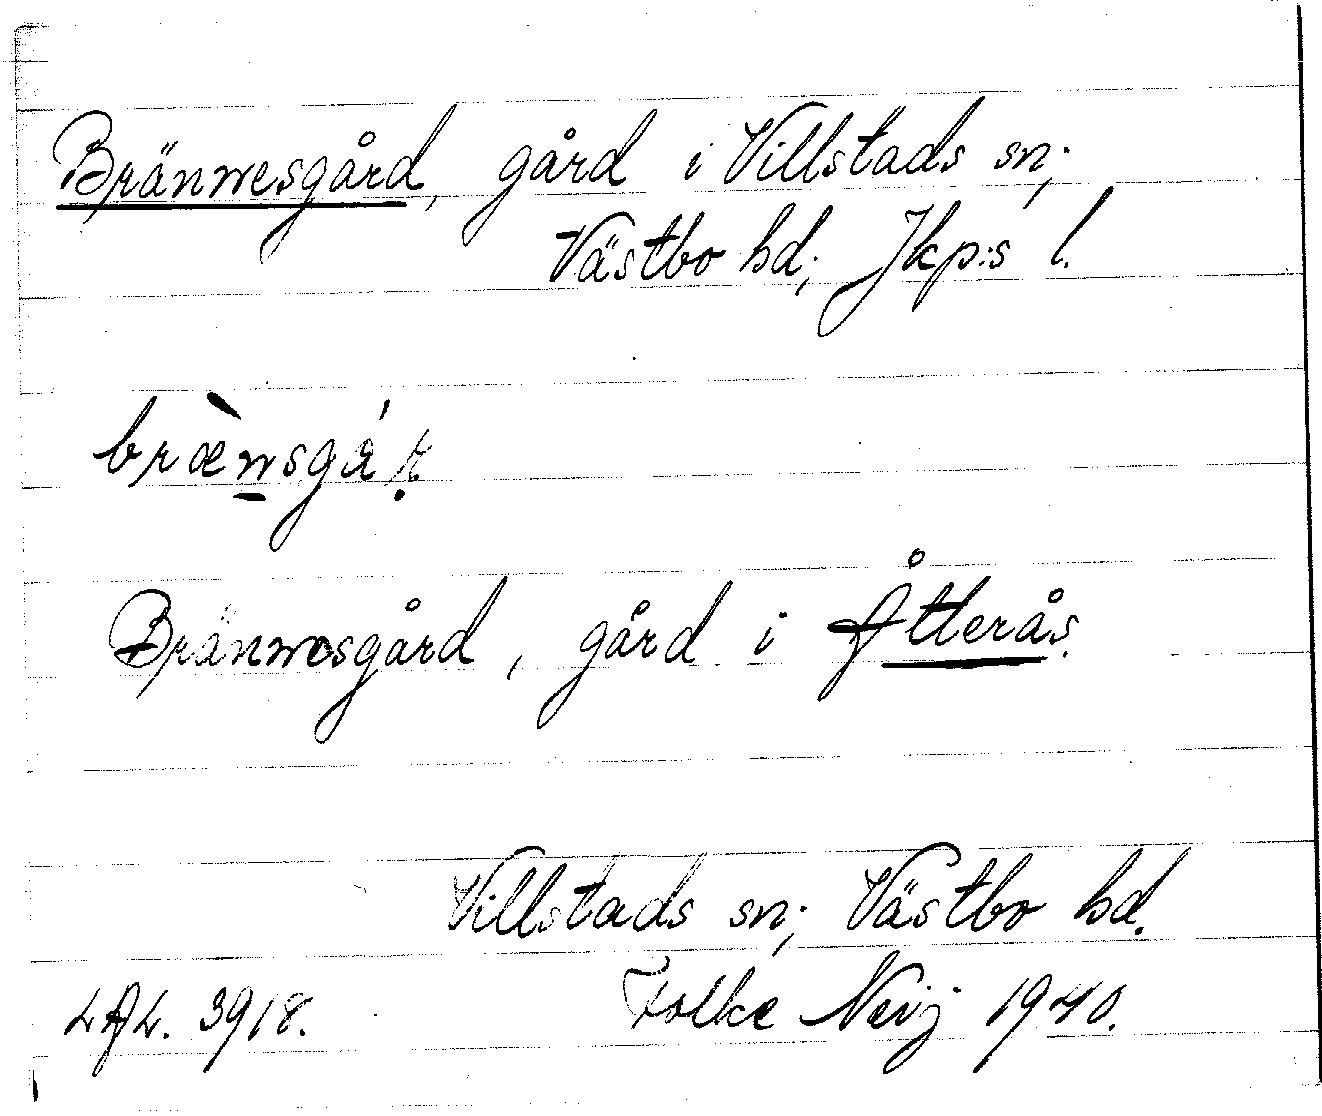 Brännesgård, gård i Villstads sn;
Västbo hd; Jkp:s l.
Brännesgård, gård i Åtterås.
Villstads sn; Västbo hd.
LAL. 3918. Folke Neij 1940.